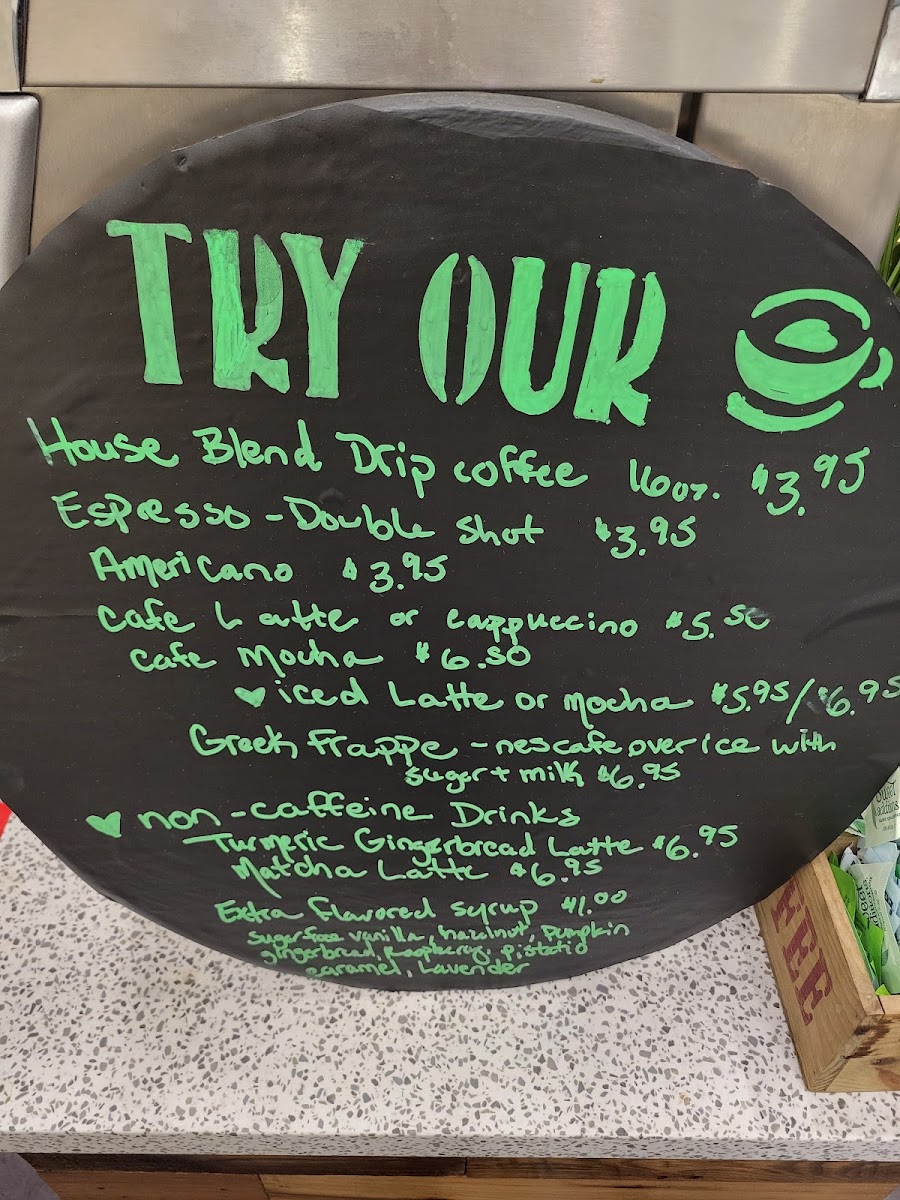 TRY OUR
House Blend Drip coffee 16oz. $3.95
Espresso - Double Shot $3.95
Americano $3.95
Cafe Latte or cappuccino $5.50
Cafe Mocha $6.50
iced Latte or mocha $5.95/$6.95
Greek Frappe - nescafe over ice with
sugar + milk $6.95
non-caffeine Drinks
Turmeric Gingerbread Latte $6.95
Matcha Latte $6.95
Extra flavored syrup $1.00
sugar free vanilla, hazelnut, pumpkin
gingerbread, Raspberry, pistatio
caramel, Lavender